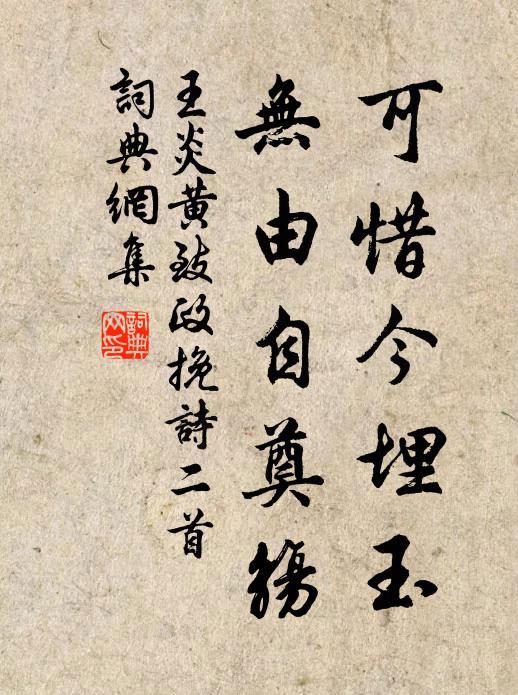 可惜今埋玉
無由自奠觴
王炎黄致政挽詩二首
詞典網集
詞典网印